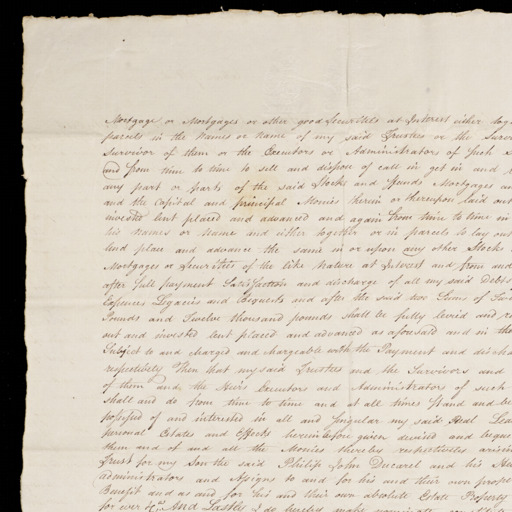 Mortgage or Mortgages or other good Securities at Interest either tog
parcels in the Names or Name of my said Trustees or the Surv
Survivor of them or the Executors or Administrators of such
and from time to time to sell and dispose of call in get in and
any part or parts of the said Stocks and Funds Mortgages an
and the Capital and principal Monies herein or thereupon laid out
invested lent placed and advanced and again from time to time in
his Names or Name and either together or in parcels to lay out
lend place and advance the same in or upon any other Stocks
Mortgages or Securities of the like Nature at Interest and from and
after full payment Satisfaction and discharge of all my said Debts
Expences Legacies and Bequests and after the said two Sums of
Pounds and Twelve thousand pounds shall be fully levied and r
out and invested lent placed and advanced as aforesaid and in th
Subject to and charged and chargeable with the Payment and discha
respectively Then that my said Trustees and the Survivors and
of them and the Heirs Executors and Administrators of such
shall and do from time to time and at all times stand and be
possessed of and interested in all and singular my said Real Lea
personal Estates and Effects hereinbefore given devised and beque
them and of and all the Monies thereby respectively arisin
Trust for my Son the said Philip John Ducarel and his He
administrators and Assigns to and for his and their own prope
Benefit and as and for his and their own absolute Estate Property
for ever And Lastly I do hereby make nominate